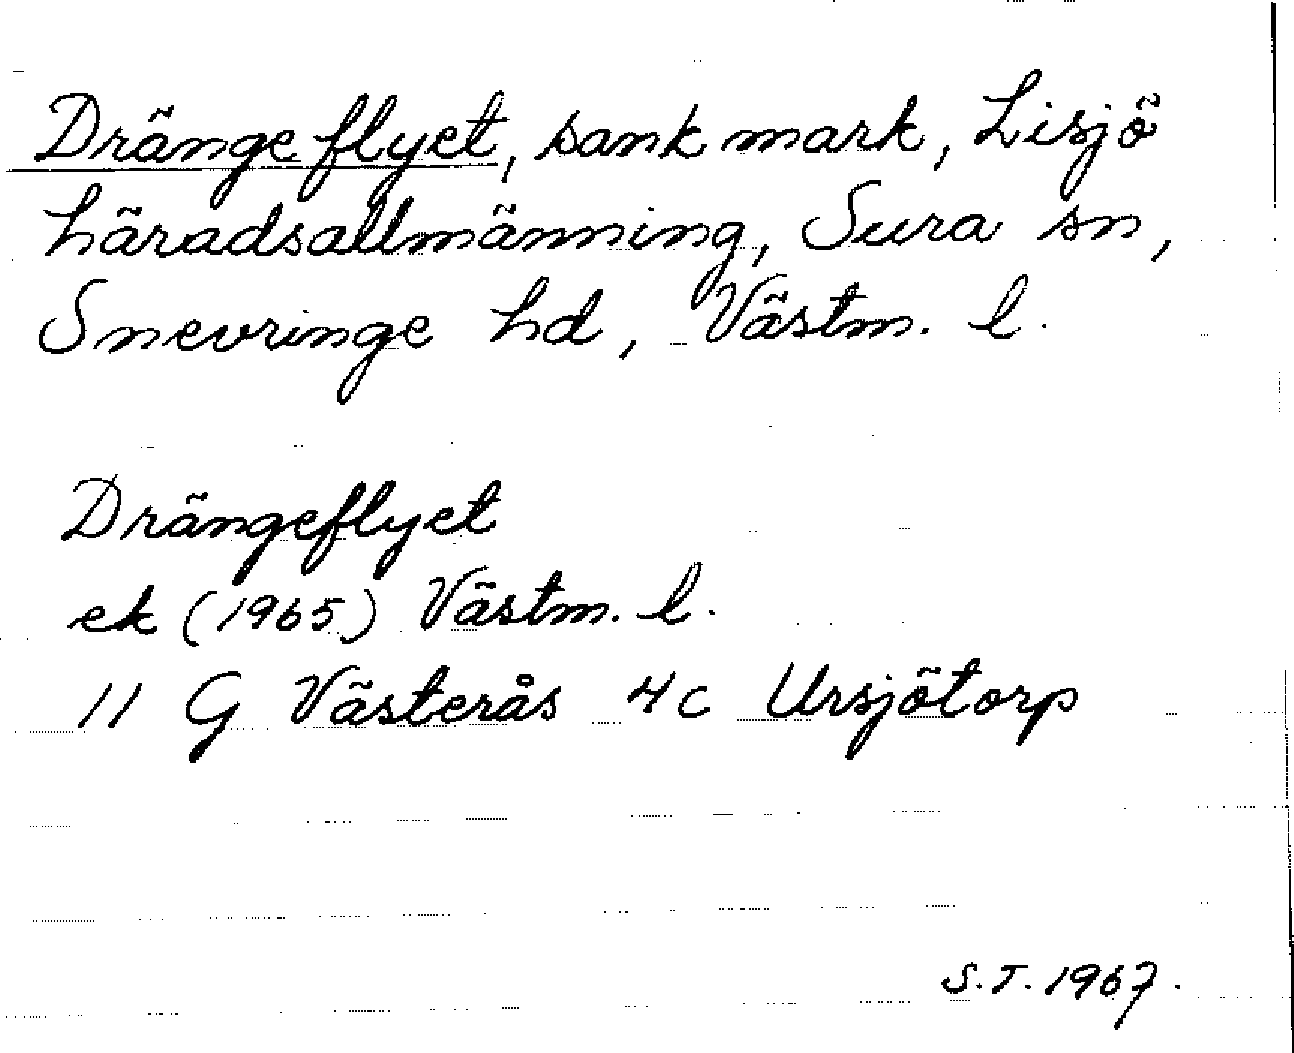 Drängeflyet, sank mark, Lisjö
häradsallmänning, Sura sn,
Snevringe hd, Västm. l.
Drängeflyet
ek (1965) Västm. l.
11 G Västerås 4c Ursjötorp
S.T. 1967.